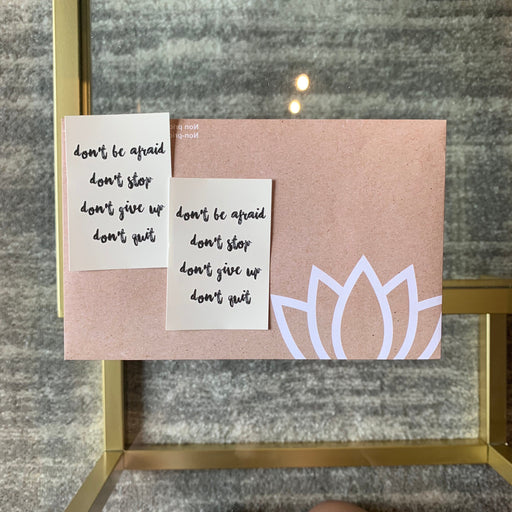 don't be afraid
don't stop
don't give up
don't quit
don't be afraid
don't stop
don't give up
don't quit